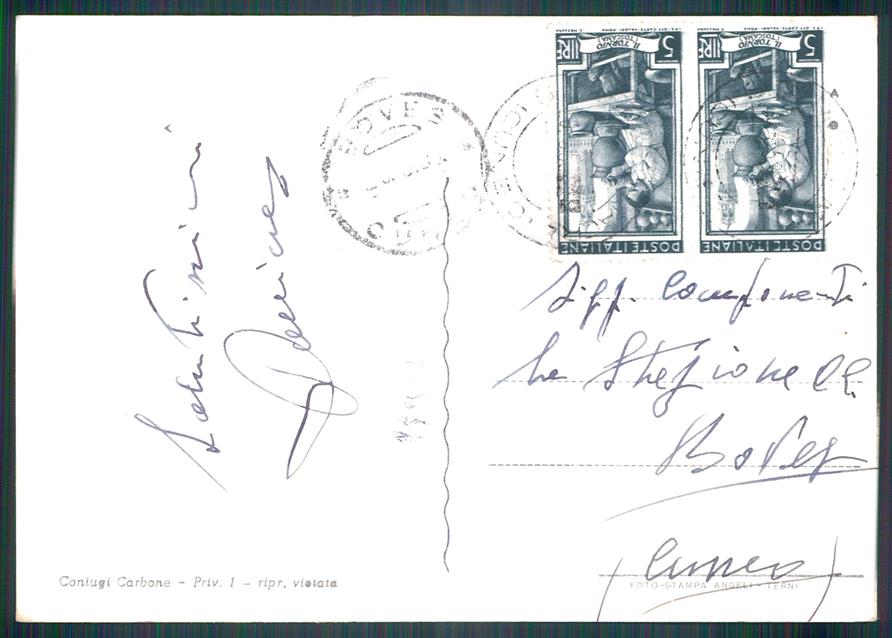 Salutissimi
BOVES
5 LIRE
IL TORNIO
(TOSCANA)
POSTE ITALIANE
5 LIRE
IL TORNIO
(TOSCANA)
POSTE ITALIANE
Sigg. Componenti
la Stazione CC
Boves
(Cuneo)
Coniugi Carbone - Priv. 1 - ripr. vietata
FOTO-STAMPA ANGELI - TERNI